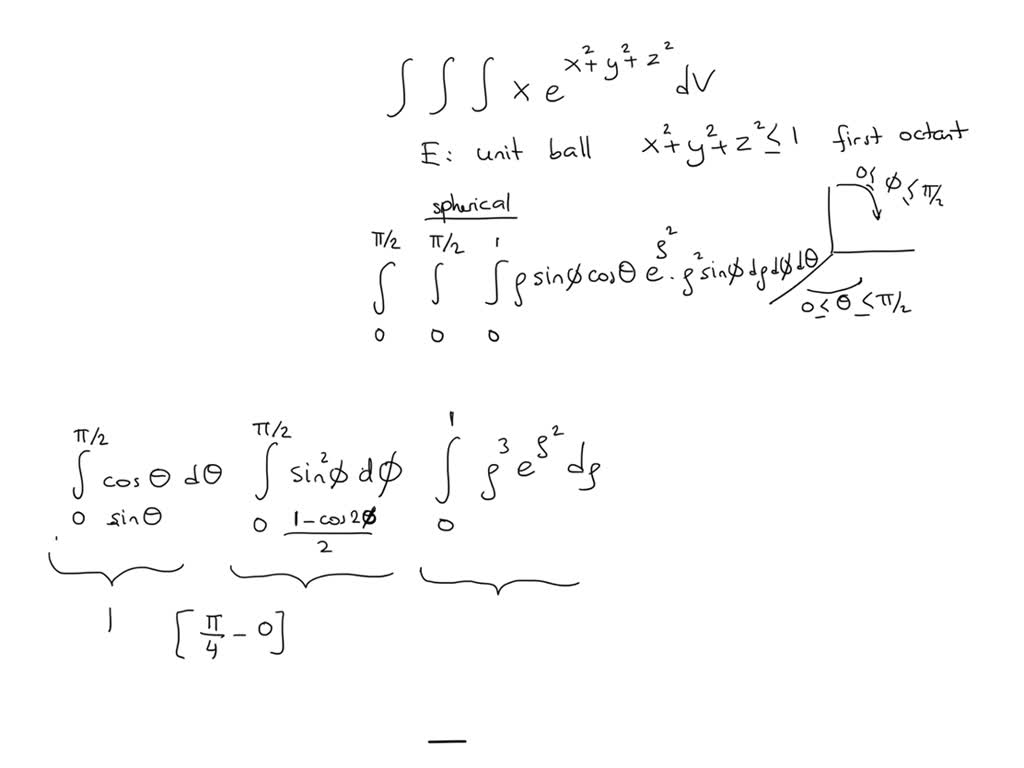 ∫ ∫ ∫ x e^{x²+y²+z²} dV
E: unit ball x²+y²+z² ≤ 1 first octant
0≤ φ ≤ π/2
spherical
∫_0^{π/2} ∫_0^{π/2} ∫_0^1 ρ sinφ cosθ e^{ρ²} · ρ² sinφ dρ dφ dθ
0 ≤ θ ≤ π/2
∫_0^{π/2} cosθ dθ ∫_0^{π/2} sin²φ dφ ∫_0^1 ρ³ e^{ρ²} dρ
sinθ (1-cos2φ)/2
1 [π/4 - 0]